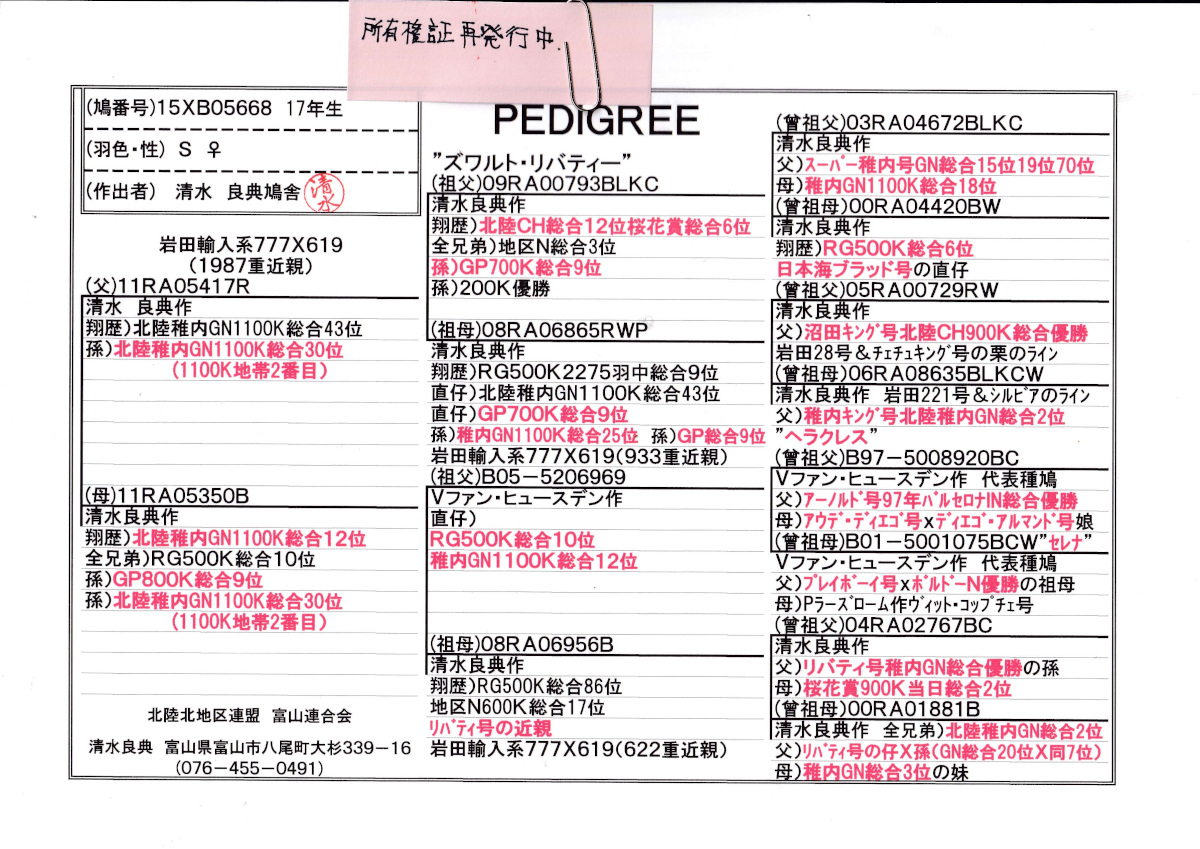 所有権証再発行中.
(鳩番号)15XB05668 17年生
(羽色・性) S ♀
(作出者) 清水 良典鳩舎
清水
岩田輸入系777X619
(1987重近親)
(父)11RA05417R
清水 良典作
翔歴)北陸稚内GN1100K総合43位
孫)北陸稚内GN1100K総合30位
(1100K地帯2番目)
(母)11RA05350B
清水良典作
翔歴)北陸稚内GN1100K総合12位
全兄弟)RG500K総合10位
孫)GP800K総合9位
孫)北陸稚内GN1100K総合30位
(1100K地帯2番目)
北陸北地区連盟 富山連合会
清水良典 富山県富山市八尾町大杉339-16
(076-455-0491)
PEDIGREE
"ズワルト・リバティー"
(祖父)09RA00793BLKC
清水良典作
翔歴)北陸CH総合12位桜花賞総合6位
全兄弟)地区N総合3位
孫)GP700K総合9位
孫)200K優勝
(祖母)08RA06865RWP
清水良典作
翔歴)RG500K2275羽中総合9位
直仔)北陸稚内GN1100K総合43位
直仔)GP700K総合9位
孫)稚内GN1100K総合25位 孫)GP総合9位
岩田輸入系777X619(933重近親)
(祖父)B05-5206969
Vファン・ヒュースデン作
直仔)
RG500K総合10位
稚内GN1100K総合12位
(祖母)08RA06956B
清水良典作
翔歴)RG500K総合86位
地区N600K総合17位
リバティ号の近親
岩田輸入系777X619(622重近親)
(曾祖父)03RA04672BLKC
清水良典作
父)スーパー稚内号GN総合15位19位70位
母)稚内GN1100K総合18位
(曾祖母)00RA04420BW
清水良典作
翔歴)RG500K総合6位
日本海ブラッド号の直仔
(曾祖父)05RA00729RW
清水良典作
父)沼田キング号北陸CH900K総合優勝
岩田28号&チェチュキング号の栗のライン
(曾祖母)06RA08635BLKCW
清水良典作 岩田221号&シルビアのライン
父)稚内キング号北陸稚内GN総合2位
"ヘラクレス"
(曾祖父)B97-5008920BC
Vファン・ヒュースデン作 代表種鳩
父)アーノルド号97年バルセロナIN総合優勝
母)アウデ・ディエゴ号xディエゴ・アルマンド号娘
(曾祖母)B01-5001075BCW"セレナ"
Vファン・ヒュースデン作 代表種鳩
父)プレイボーイ号xボルドーN優勝の祖母
母)Pラーズローム作ヴィット・コップチェ号
(曾祖父)04RA02767BC
清水良典作
父)リバティ号稚内GN総合優勝の孫
母)桜花賞900K当日総合2位
(曾祖母)00RA01881B
清水良典作 全兄弟)北陸稚内GN総合2位
父)リバティ号の仔X孫(GN総合20位X同7位)
母)稚内GN総合3位の妹